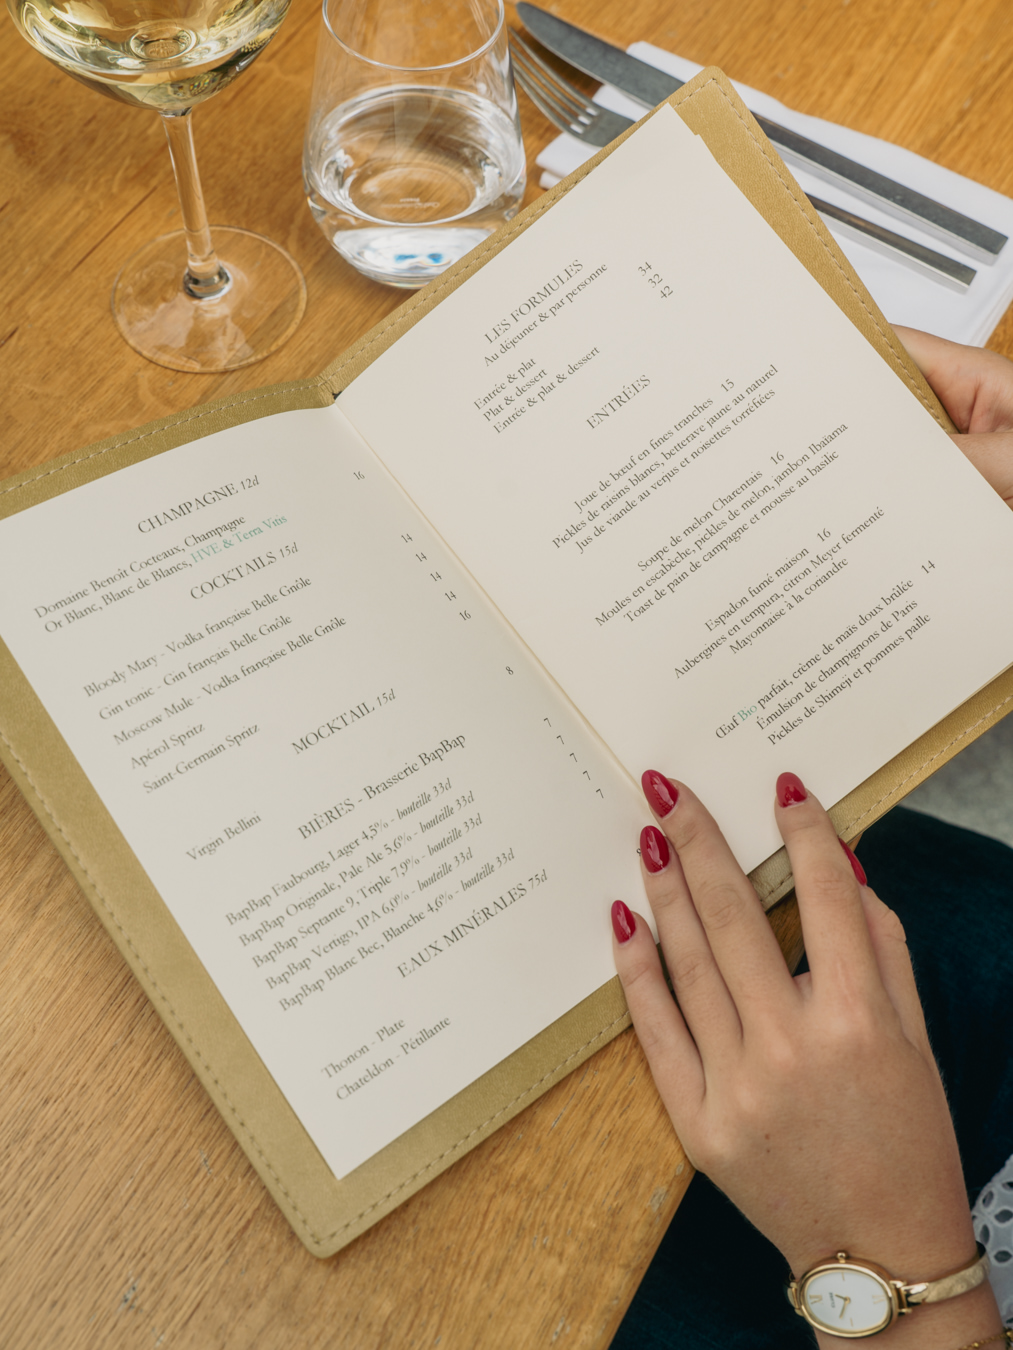 CHAMPAGNE 12cl
Domaine Benoît Cocteaux, Champagne 16
Or Blanc, Blanc de Blancs, HVE & Terra Vitis
COCKTAILS 15cl
Bloody Mary - Vodka française Belle Gnôle 14
Gin tonic - Gin français Belle Gnôle 14
Moscow Mule - Vodka française Belle Gnôle 14
Apérol Spritz 14
Saint-Germain Spritz 16
MOCKTAIL 15cl
Virgin Bellini 8
BIÈRES - Brasserie BapBap
BapBap Faubourg, Lager 4,5% - bouteille 33cl 7
BapBap Originale, Pale Ale 5,6% - bouteille 33cl 7
BapBap Septante 9, Triple 7,9% - bouteille 33cl 7
BapBap Vertigo, IPA 6,0% - bouteille 33cl 7
BapBap Blanc Bec, Blanche 4,6% - bouteille 33cl 7
EAUX MINÉRALES 75cl
Thonon - Plate
Chateldon - Pétillante
LES FORMULES
Au déjeuner & par personne
Entrée & plat 34
Plat & dessert 32
Entrée & plat & dessert 42
ENTRÉES
Joue de bœuf en fines tranches 15
Pickles de raisins blancs, betterave jaune au naturel
Jus de viande au verjus et noisettes torréfiées
Soupe de melon Charentais 16
Moules en escabèche, pickles de melon, jambon Ibaïama
Toast de pain de campagne et mousse au basilic
Espadon fumé maison 16
Aubergines en tempura, citron Meyer fermenté
Mayonnaise à la coriandre
Œuf Bio parfait, crème de maïs doux brûlée 14
Émulsion de champignons de Paris
Pickles de Shimeji et pommes paille